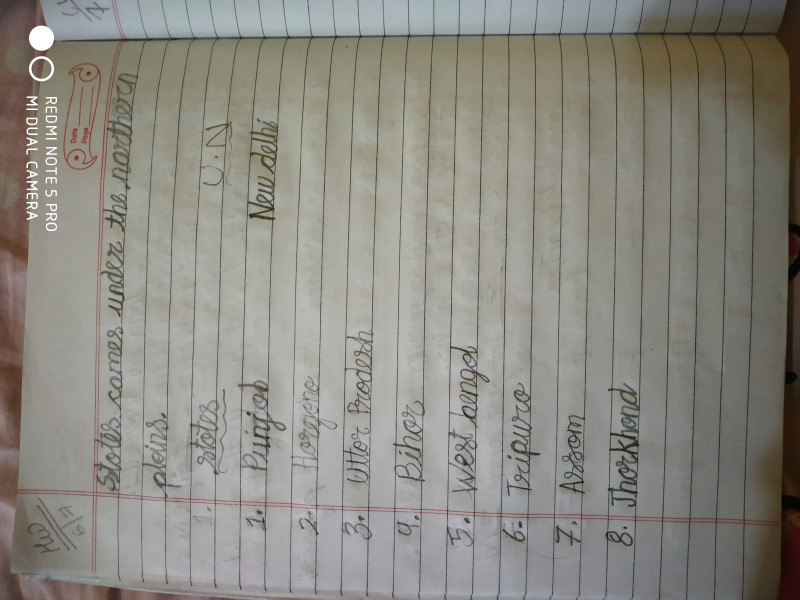 HW
6/4
Date
Page
States cames under the northern
plains.
1. states U.N
1. Punjab New delhi
2. Haryana
3. Uttar Pradesh
4. Bihar
5. West bangal
6. Tripura
7. Assam
8. Jharkhand
REDMI NOTE 5 PRO
MI DUAL CAMERA